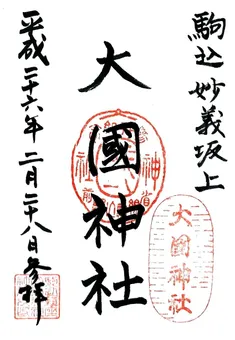 駒込妙義坂上
大國神社
大國神社
平成二十六年二月二十八日参拝